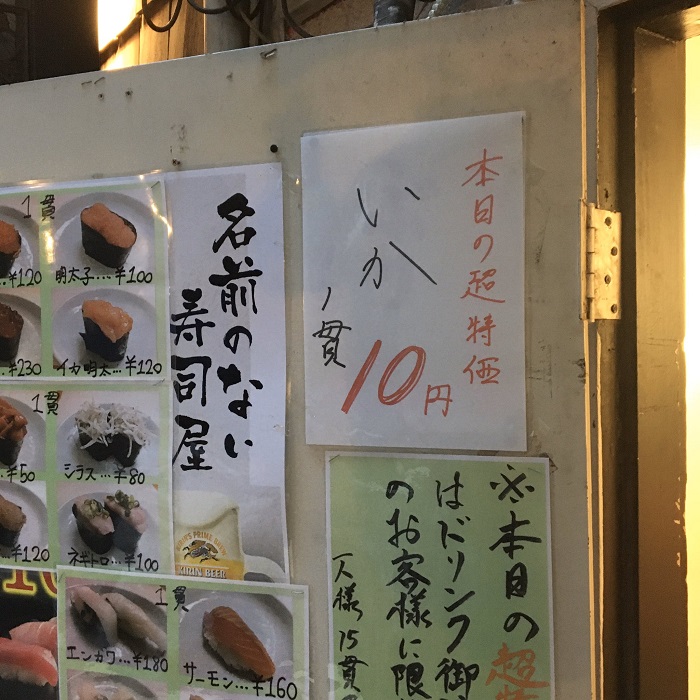 本日の超特価
いか
1貫
10円
名前のない
寿司屋
1貫
¥120
明太子…¥100
¥230
イカ明太…¥120
1貫
¥50
シラス…¥80
¥120
ネギトロ…¥100
KIRIN BEER
1貫
エンガワ…¥180
サーモン…¥160
※本日の超
はドリンク御
のお客様に限
一人様15貫